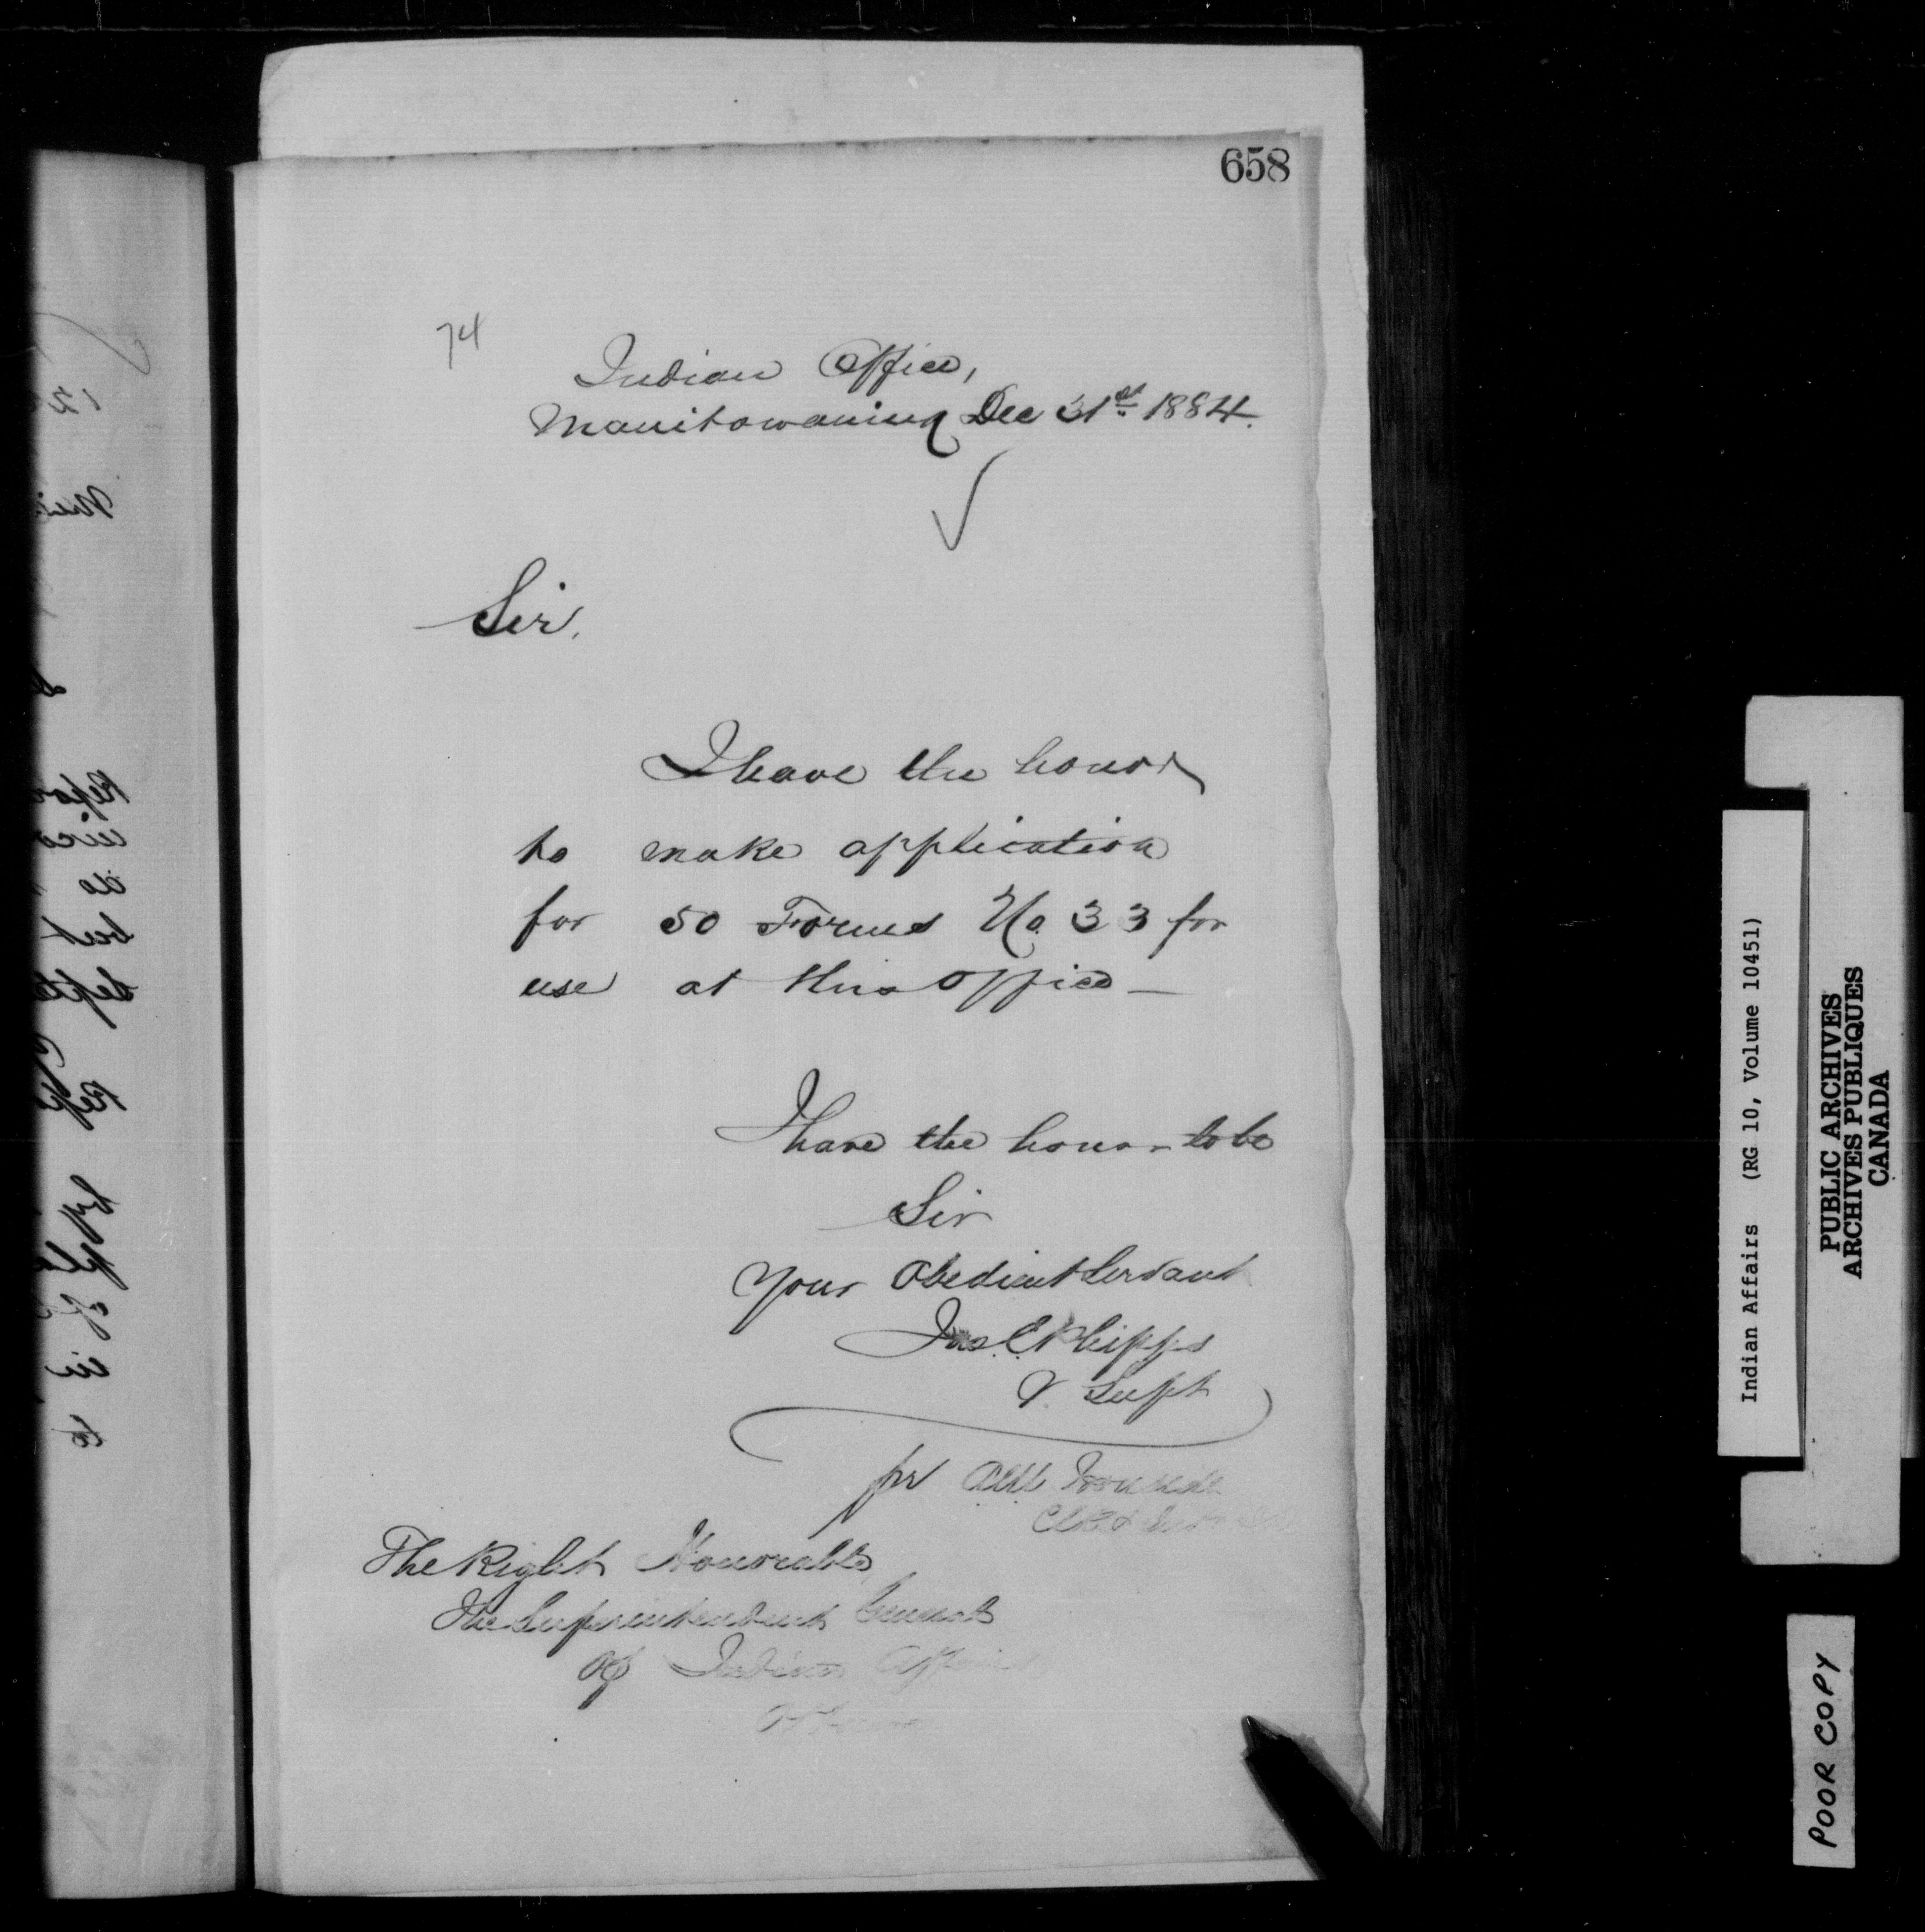 658
74
Indian Office,
Manitowaning Dec 31st 1884.
Sir,
I have the honor
to make application
for 50 Forms No. 33 for
use at this office —
I have the honor to be
Sir
Your Obedient Servant
Jas. C. Phipps
V. Supt
per Ironside
Clk &
The Right Honorable,
The Superintendent General
of Indian Affairs
Ottawa
Indian Affairs (RG 10, Volume 10451)
PUBLIC ARCHIVES
ARCHIVES PUBLIQUES
CANADA
POOR COPY